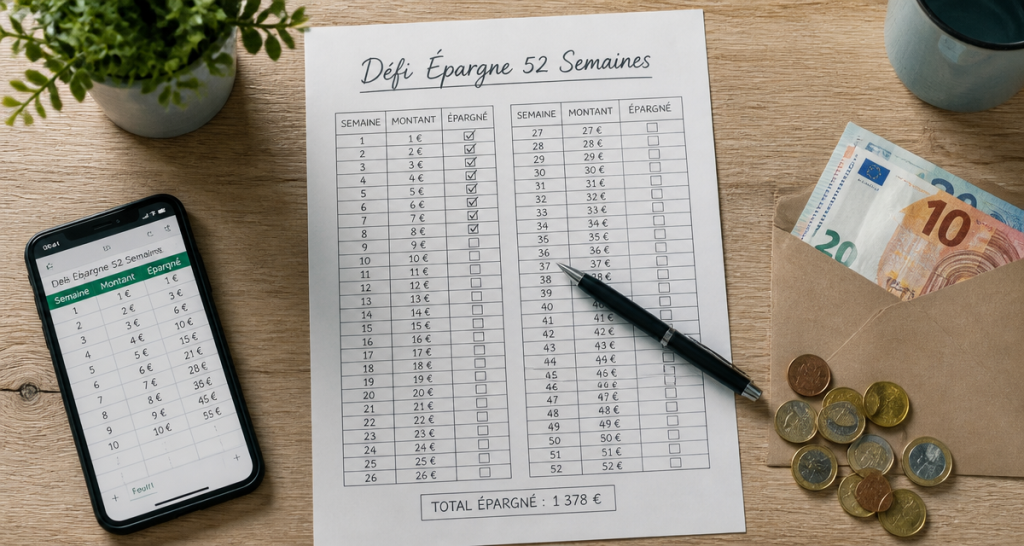 Défi Épargne 52 Semaines
SEMAINE MONTANT ÉPARGNÉ
1 1 €
2 2 €
3 3 €
4 4 €
5 5 €
6 6 €
7 7 €
8 8 €
9 9 €
10 10 €
11 11 €
12 12 €
13 13 €
14 14 €
15 15 €
16 16 €
17 17 €
18 18 €
19 19 €
20 20 €
21 21 €
22 22 €
23 23 €
24 24 €
25 25 €
26 26 €
SEMAINE MONTANT ÉPARGNÉ
27 27 €
28 28 €
29 29 €
30 30 €
31 31 €
32 32 €
33 33 €
34 34 €
35 35 €
36 36 €
37 37 €
38 38 €
39
40
41 41 €
42 42 €
43 43 €
44 44 €
45 45 €
46 46 €
47 47 €
48 48 €
49 49 €
50 50 €
51 51 €
52 52 €
TOTAL ÉPARGNÉ : 1 378 €
Défi Épargne 52 Semaines
Semaine Montant Épargné
1 1 € 1 €
2 2 € 3 €
3 3 € 6 €
4 4 € 10 €
5 5 € 15 €
6 6 € 21 €
7 7 € 28 €
8 8 € 36 €
9 9 € 45 €
10 10 € 55 €
Feuil1
20
20
10